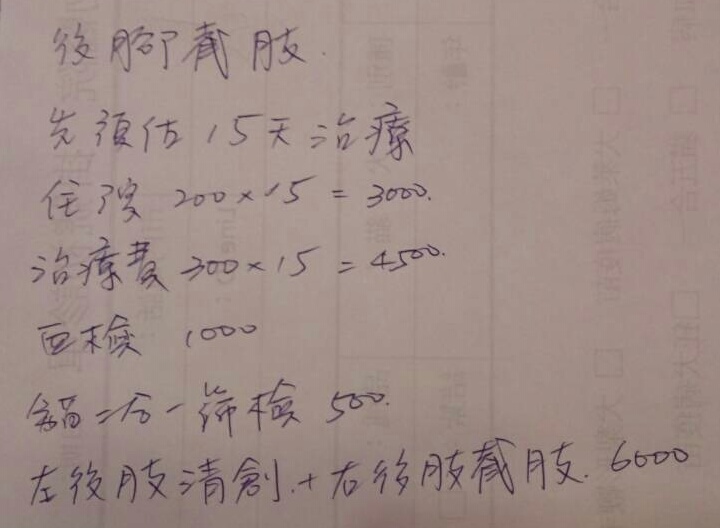 後腳截肢.
先預估 15天治療
住院 200×15=3000.
治療費 300×15=4500.
血檢 1000
貓二合一篩檢 500.
左後肢清創.+右後肢截肢. 6000